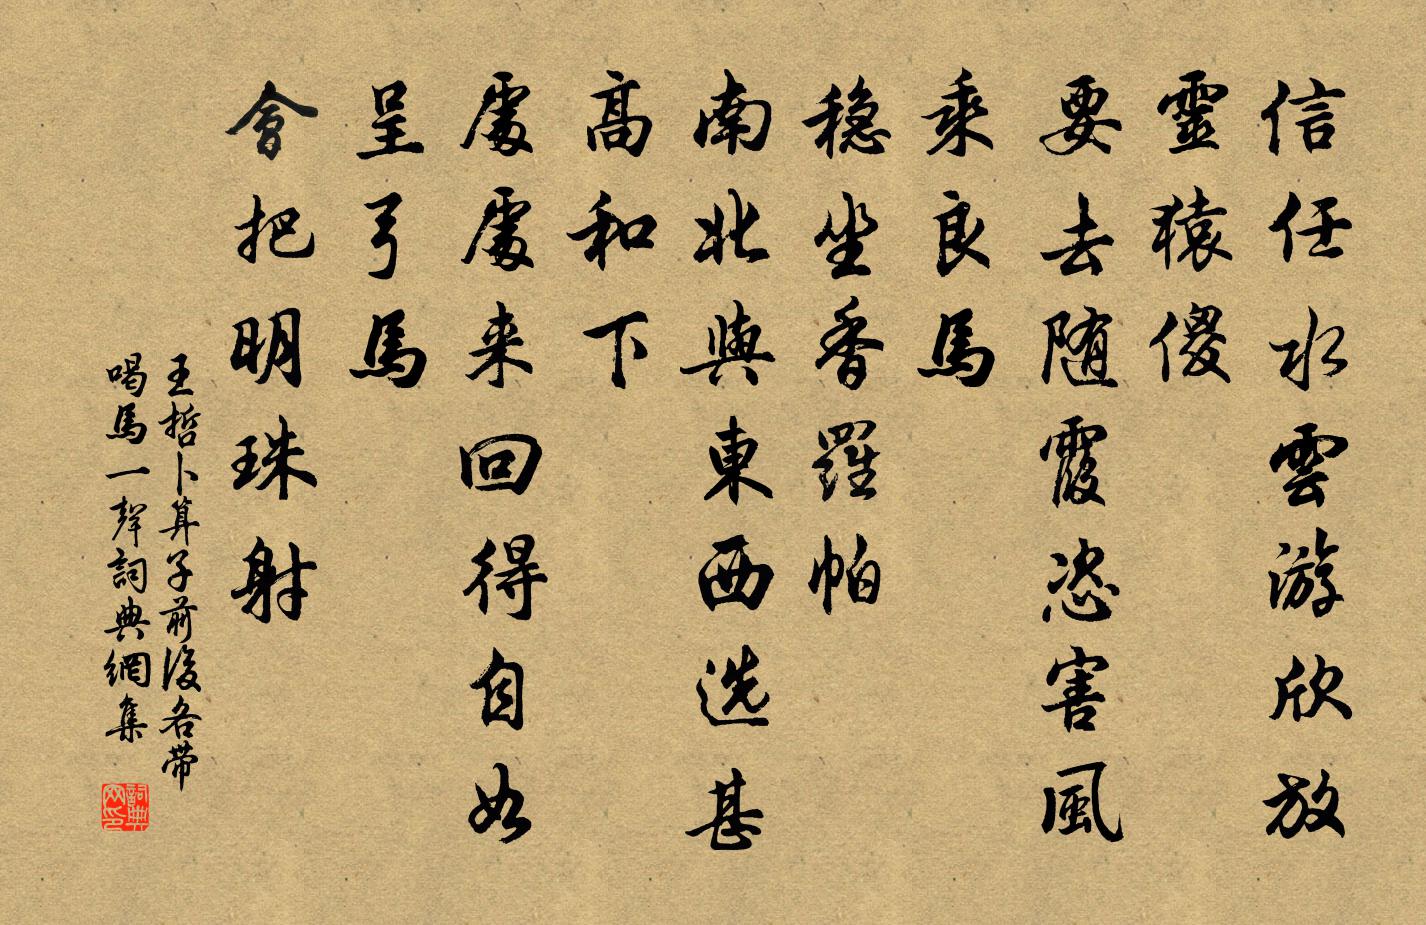 信任水雲游欣放
靈猿儍
要去随霞恣害風
乘良馬
穏坐香羅帕
南北與東西选甚
高和下
處處来回得自如
呈弓馬
會把明珠射
王哲卜算子前後各带
喝馬一聲詞典網集
詞典
网印